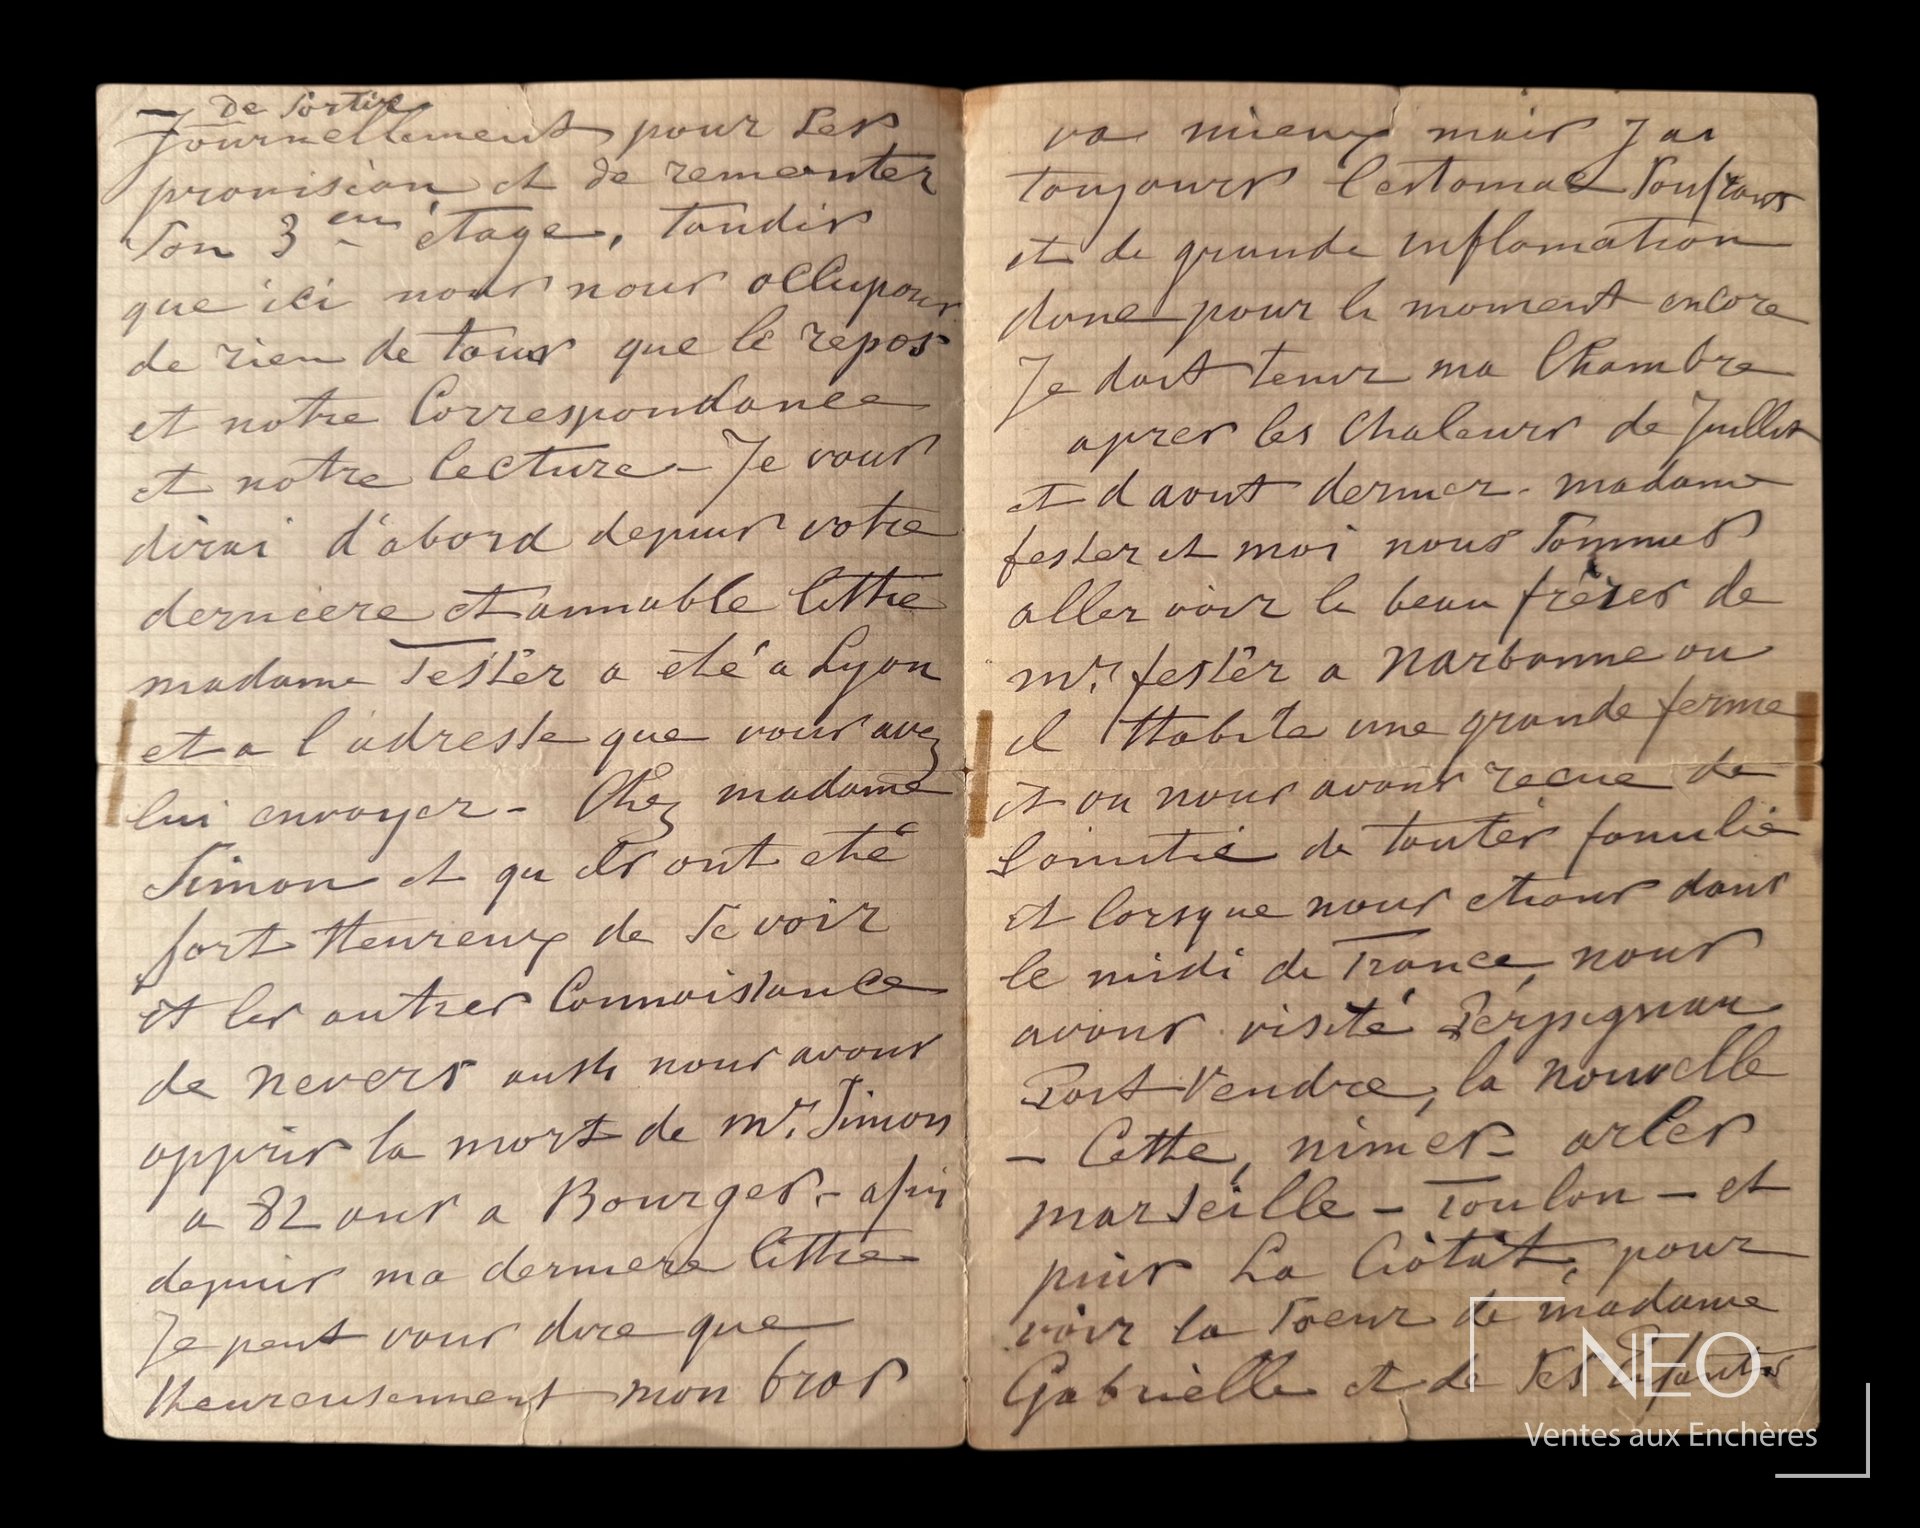 de sortire
Journellement pour ses
provision et de remonter
son 3 em étage, tandis
que ici nous nous occupons
de rien de tous que le repos
et notre Correspondance
et notre lecture - Je vous
dirai d'abord depuis votre
derniere et aimable lettre
madame Tester a été a Lyon
et a l'adresse que vous avez
lui envoyer - Chez madame
Simon et qu ils ont eté
fort Heureux de se voir
et les autres Connoissance
de nevers aussi nous avons
appris la mort de mr. Simon
a 82 ans a Bourges - afin
depuis ma derniere lettre
Je peut vous dire que
Heureusement mon bras
va mieux mais Jai
toujours lestomac soufrans
et de grande inflamation
donc pour le moment encore
Je doit tenir ma Chambre
apres les Chaleurs de Juillet
et daout dernier - madame
fester et moi nous sommes
aller voir le beau fréres de
mr. fester a Narbonne ou
il Habite une grande ferme
et ou nous avons recue de
Lamitié de toutes famulie
et lorsque nous etions dans
le midi de France, nous
avons visité Pérpignan
Port Vendre, la nouvelle
- Cette, nimes - arles
marseille - Toulon - et
puis La Ciôtàt, pour
voir la soeur de madame
Gabrièlle et de ses Enfants
NEO
Ventes aux Enchères